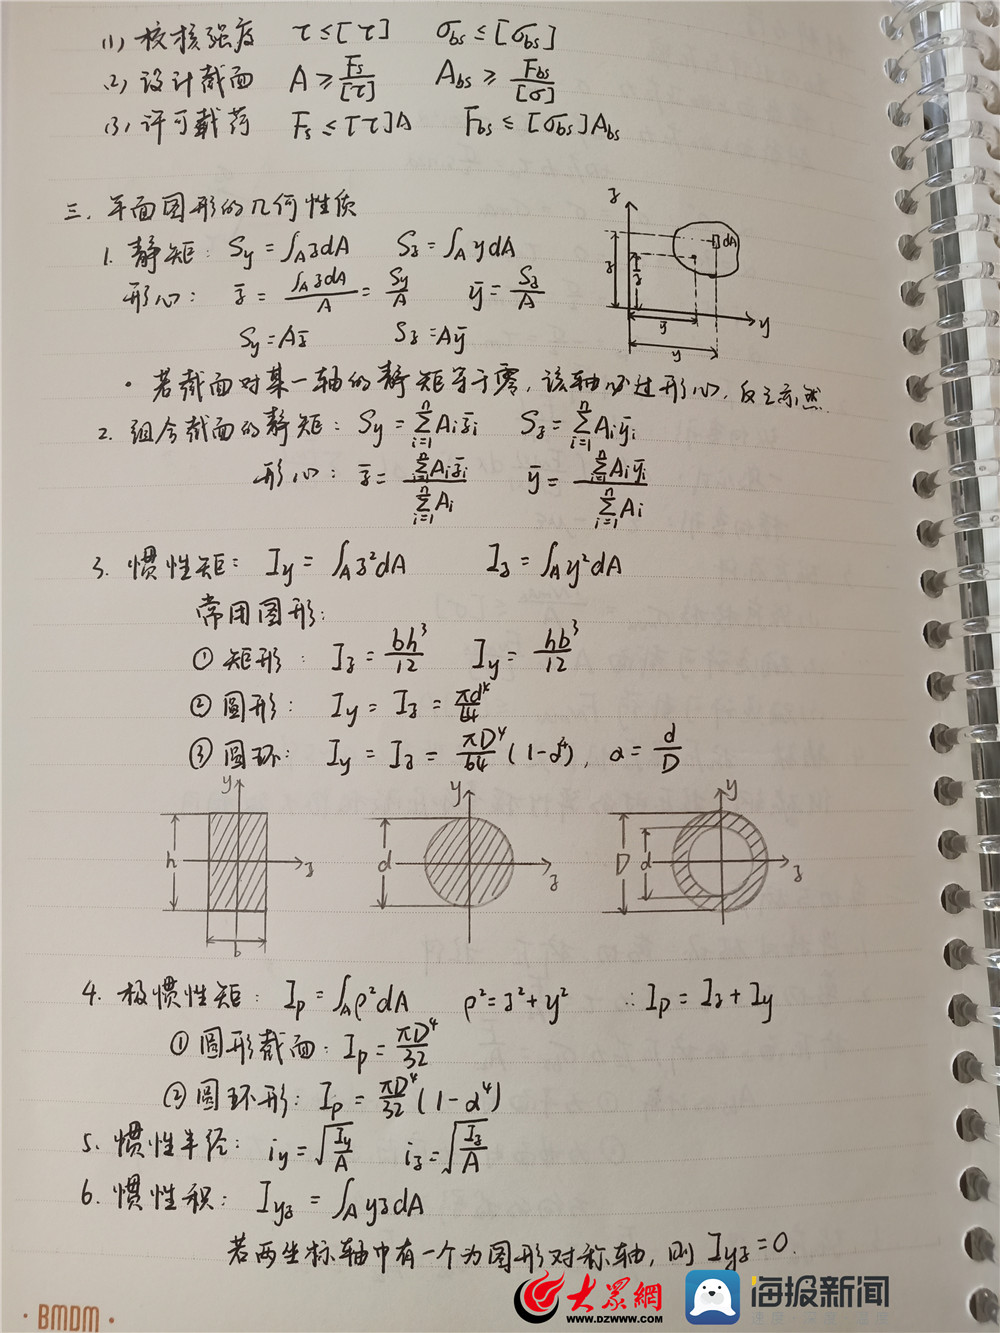 (1) 校核强度 τ≤[τ] σbs≤[σbs]
(2) 设计截面 A≥Fs/[τ] Abs≥Fbs/[σ]
(3) 许可载荷 Fs≤[τ]A Fbs≤[σbs]Abs
三. 平面图形的几何性质
1. 静矩: Sy=∫AzdA Sz=∫AydA
形心: z̄=∫AzdA/A=Sy/A ȳ=Sz/A
Sy=Az̄ Sz=Aȳ
z dA z z̄ ȳ y y
· 若截面对某一轴的静矩等于零, 该轴必过形心, 反之亦然.
2. 组合截面的静矩: Sy=∑(i=1→n)Aiz̄i Sz=∑(i=1→n)Aiȳi
形心: z̄=∑(i=1→n)Aiz̄i/∑(i=1→n)Ai ȳ=∑(i=1→n)Aiȳi/∑(i=1→n)Ai
3. 惯性矩: Iy=∫Az²dA Iz=∫Ay²dA
常用图形:
① 矩形: Iz=bh³/12 Iy=hb³/12
② 圆形: Iy=Iz=πd⁴/64
③ 圆环: Iy=Iz=πD⁴/64(1-α⁴), α=d/D
y h z b
y d z
y D d z
4. 极惯性矩: Ip=∫Aρ²dA ρ²=z²+y² ∴Ip=Iz+Iy
① 圆形截面: Ip=πD⁴/32
② 圆环形: Ip=πD⁴/32(1-α⁴)
5. 惯性半径: iy=√(Iy/A) iz=√(Iz/A)
6. 惯性积: Iyz=∫AyzdA
若两坐标轴中有一个为图形对称轴, 则 Iyz=0.
·BMDM·
大众网 海报新闻
WWW.DZWWW.COM